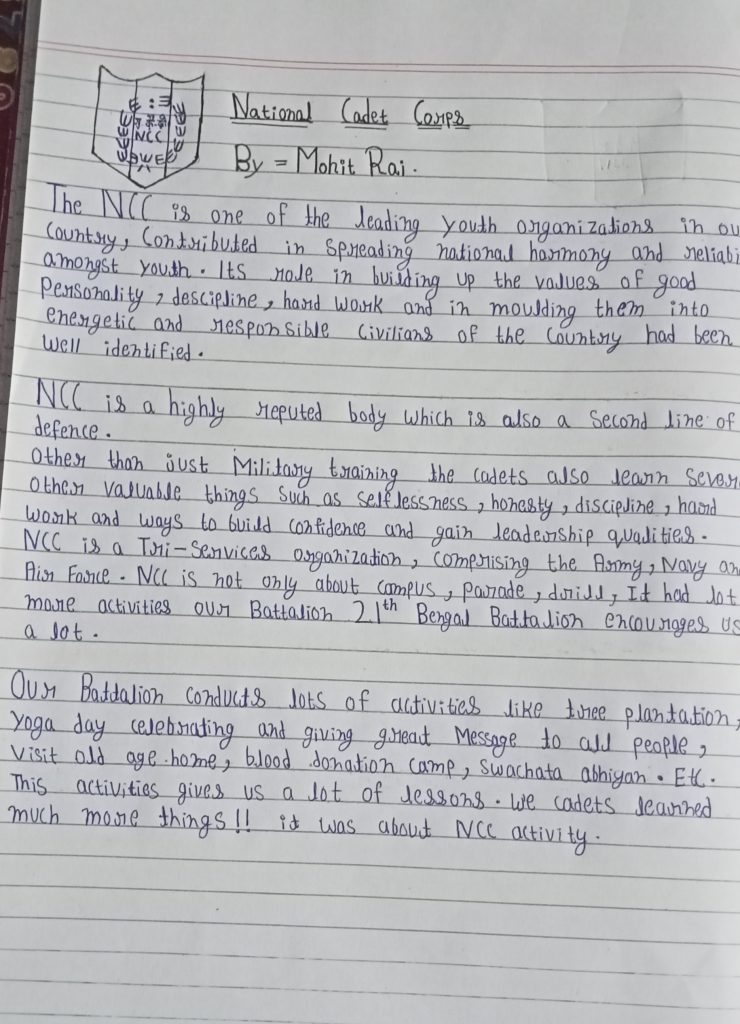 National Cadet Corps
NCC
By = Mohit Rai.
The NCC is one of the leading youth organizations in ou
Country, Contributed in Spreading national harmony and reliabi
amongst youth. Its role in building up the values of good
Personality, descipline, hard work and in moulding them into
energetic and responsible Civilians of the Country had been
well identified.
NCC is a highly reputed body which is also a Second line of
defence.
Other than just Military training the cadets also learn Sever
Other valuable things Such as selflessness, honesty, discipline, hard
work and ways to build confidence and gain leadership qualities.
NCC is a Tri-Services organization, comprising the Army, Navy an
Air Force. NCC is not only about campus, parade, drill, It had lot
more activities our Battalion 21th Bengal Battalion encourages us
a lot.
Our Battalion Conducts lots of activities like tree plantation,
Yoga day celebrating and giving great Message to all people,
Visit old age home, blood donation camp, swachata abhiyan. Etc.
This activities gives us a lot of lessons. We cadets learned
much more things!! it was about NCC activity.